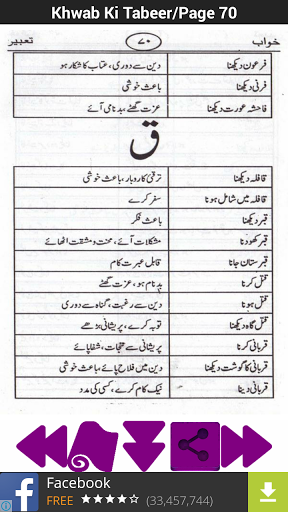 Khwab Ki Tabeer/Page 70
خواب ۷۰ تعبیر
فرعون دیکھنا دین سے دوری، عتاب کا شکار ہو
فرنی دیکھنا باعث خوشی
فاحشہ عورت دیکھنا عزت گھٹے، بدنامی آئے
ق
قافلہ دیکھنا ترقی کاروبار، باعث خوشی
قافلہ میں شامل ہونا سفر کرے
قبر دیکھنا باعث فکر
قبر کھودنا مشکلات آئے، محنت و مشقت اٹھائے
قبرستان جانا قابل عبرت کام
قتل کرنا بدنام ہو، عزت گھٹے
قتل ہونا دین سے رغبت، گناہ سے دوری
قتل گاہ دیکھنا توبہ کرے، پریشانی بڑھے
قربانی کرنا پریشانی سے نجات، شفا پائے
قربانی کا گوشت دیکھنا دین میں فلاح پائے، باعث خوشی
قربانی دینا نیک کام کرے، کسی کی مدد
Facebook
FREE (33,457,744)